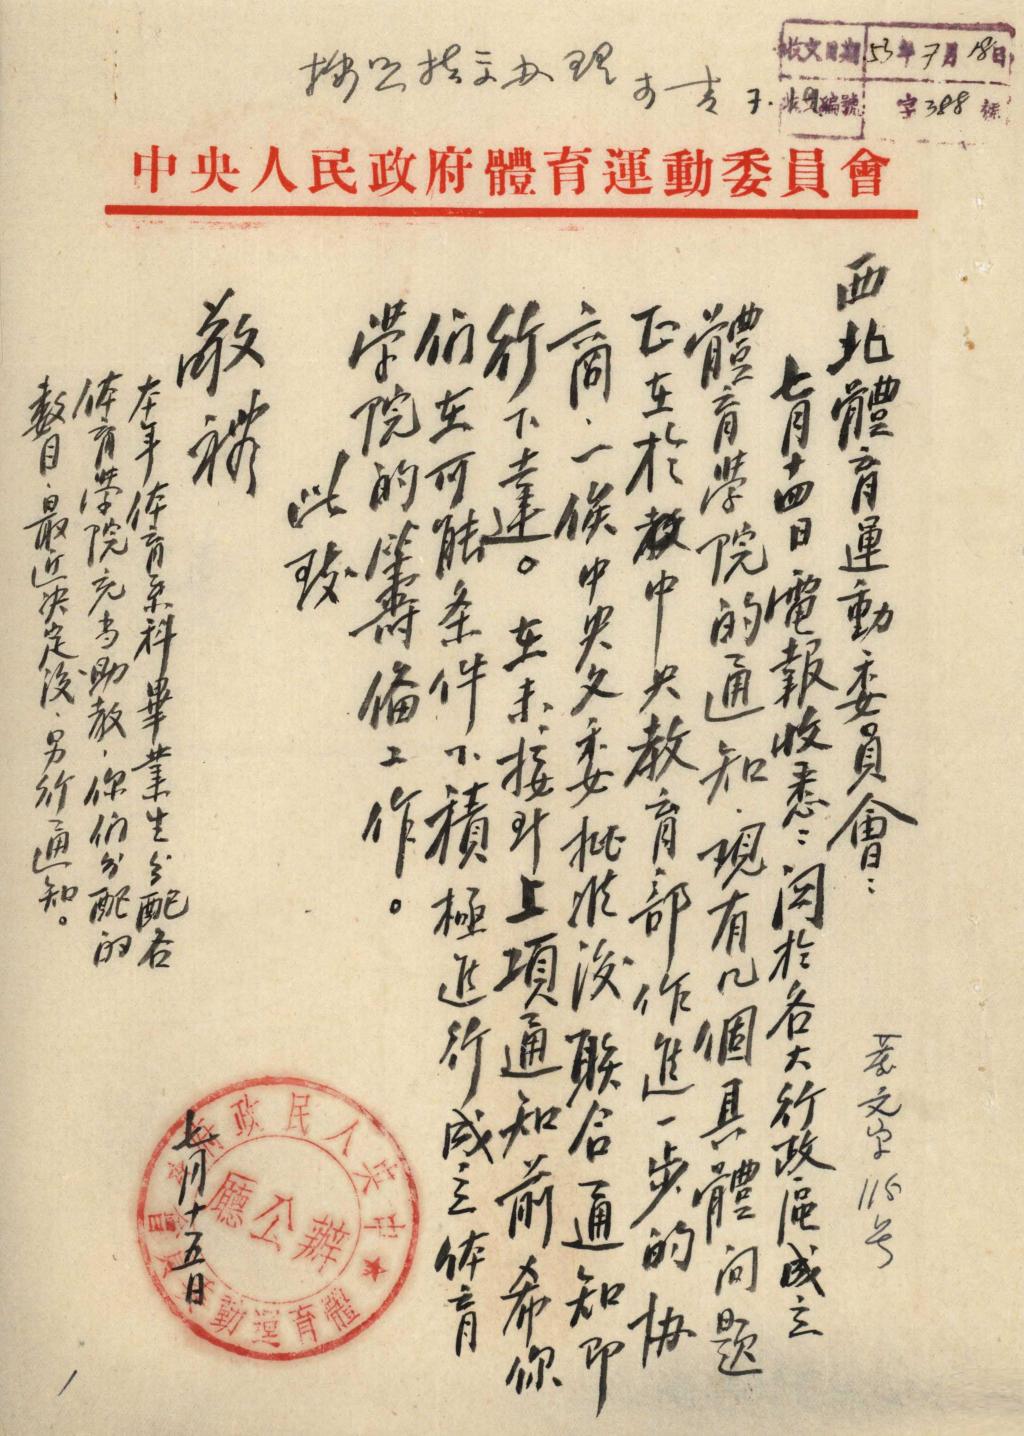 收文日期 53年7月18日
收文編號 字388號
中央人民政府體育運動委員會
西北體育運動委員會：
七月十四日電報收悉：関於各大行政區成立
體育学院的通知，現有几個具體问題
正在於教中央教育部作進一步的协
商，一俟中央文委批准後联合通知即
行下達。在未接到上項通知前希你
们在可能条件下積極進行成立体育
学院的籌備工作。
此致
敬禮
本年体育系科畢業生分配各
体育学院充当助教，你们分配的
数目，最近决定後，另行通知。
七月十五日
中央人民政府體育運動委員會
辦公廳